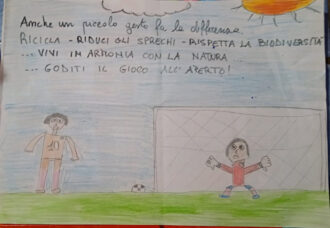 Anche un piccolo gesto fa la differenza.
RICICLA - RIDUCI GLI SPRECHI - RISPETTA LA BIODIVERSITA'
... VIVI IN ARMONIA CON LA NATURA
... GODITI IL GIOCO ALL'APERTO!
10